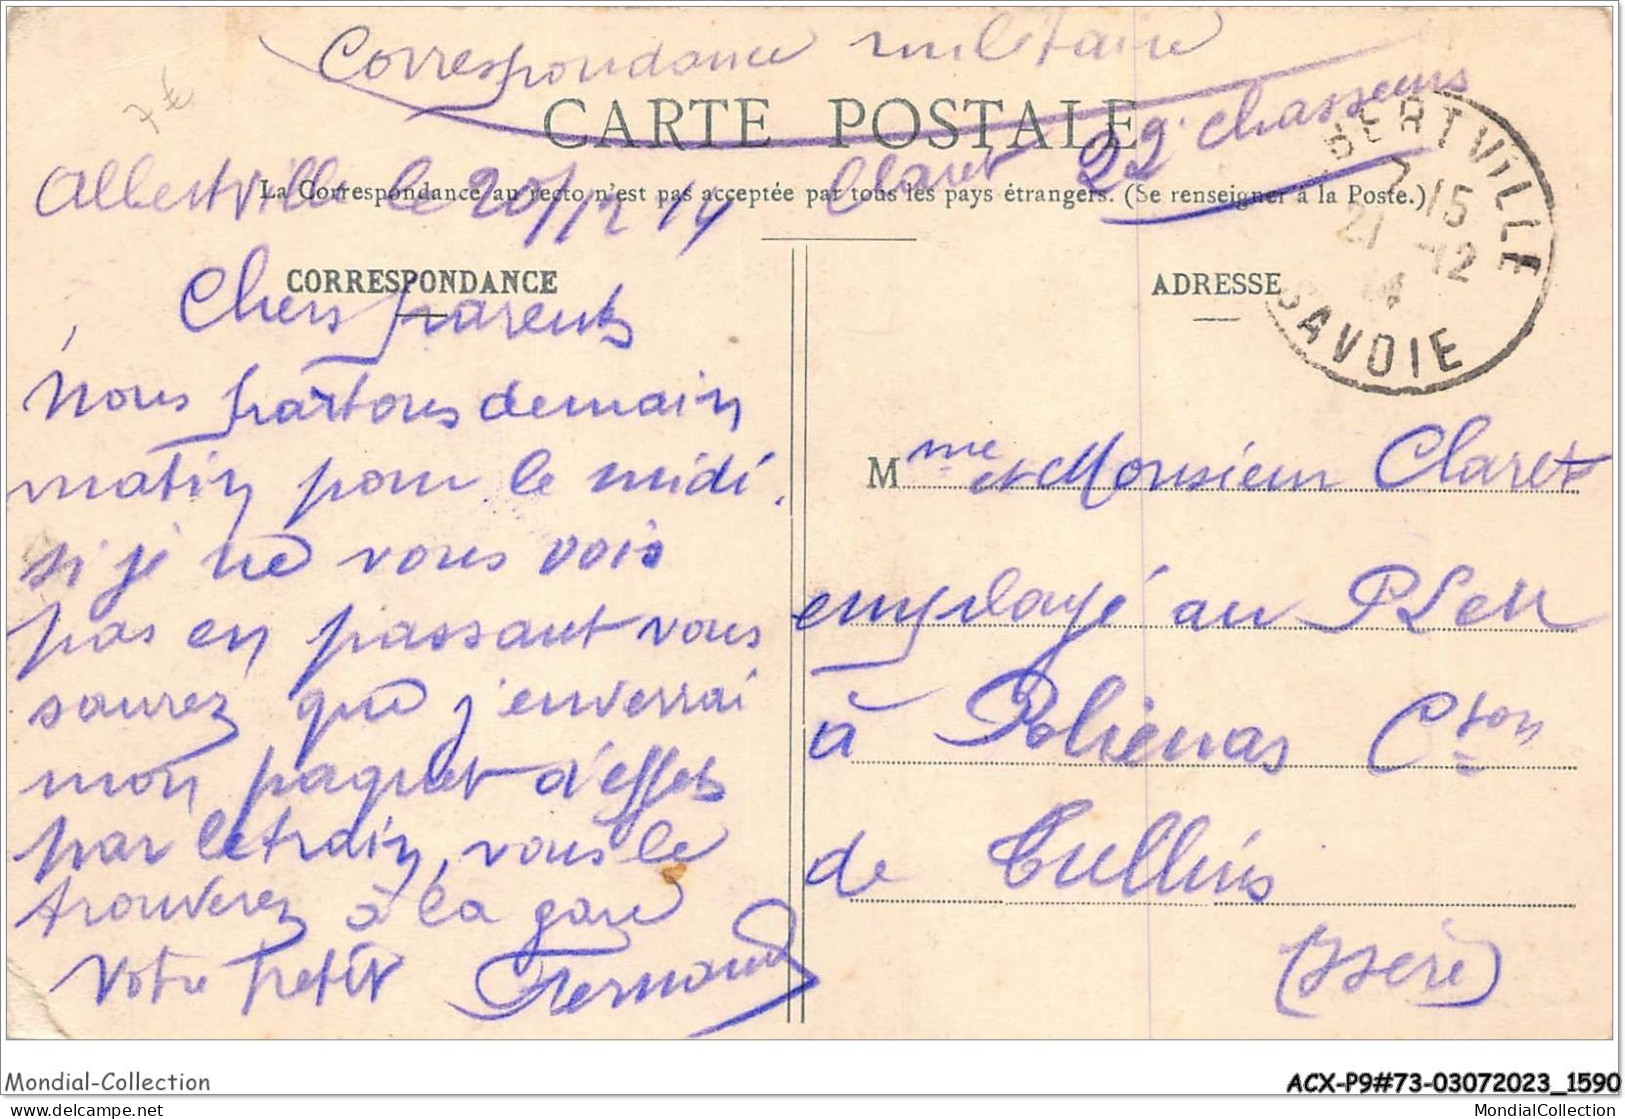 Correspondance militaire
7 €
CARTE POSTALE
Claret 22e chasseurs
Albertville le 20/12 14
La Correspondance au recto n'est pas acceptée par tous les pays étrangers. (Se renseigner à la Poste.)
BERTVILLE
7 15
21 -12
14
SAVOIE
CORRESPONDANCE
Chers parents
Nous partons demain
matin pour le midi.
si je ne vous vois
pas en passant vous
saurez que j'enverrai
mon paquet d'effets
par le train, vous le
trouverez à la gare
Votre petit Fernand
ADRESSE
Mme et Monsieur Claret
employé au
à Poliénas Cton
de Tullins
(Isère)
Mondial-Collection
ACX-P9#73-03072023_1590
www.delcampe.net
MondialCollection